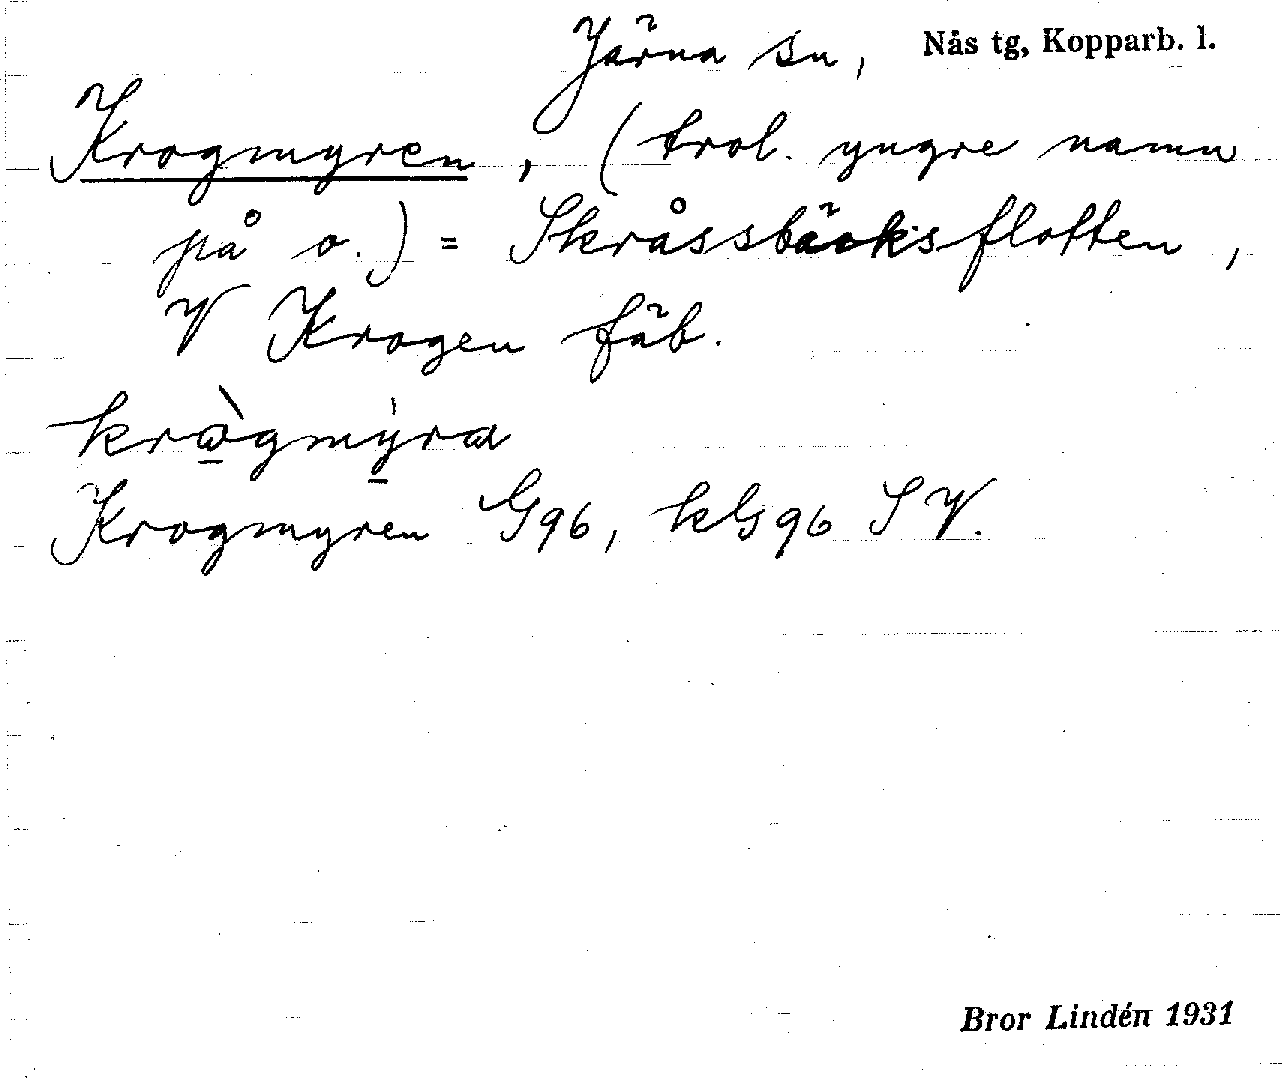 Järna sn, Nås tg, Kopparb. l.
Krogmyren, (trol. yngre namn
på o.) = Skråssbäcksflotten,
V Krogen fäb.
krògmýra
Krogmyren G96, kG96 SV.
Bror Lindén 1931